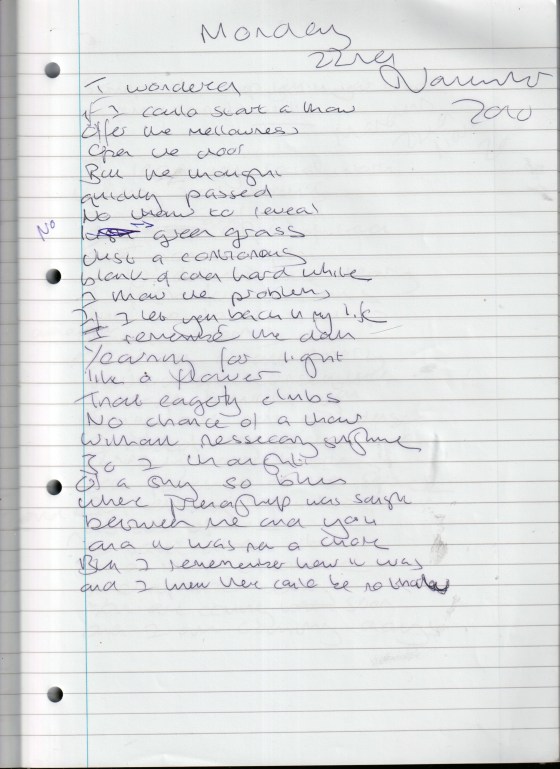 Monday
22nd
November
2010
I wondered
if I could start a thaw
Offer the mellowness
Open the door
But the thought
quickly passed
No thaw to reveal
No green grass
Just a continous
blank & cold hard white
I know the problems
If I let you back in my life
I remember the dark
Yearning for light
like a flower
That eagerly climbs
No chance of a thaw
without nessecary sunshine
So I thought
Of a sky so blue
where friendship was sough
between me and you
and it was not a chore
But I rememember how it was
and I knew there could be no thaw